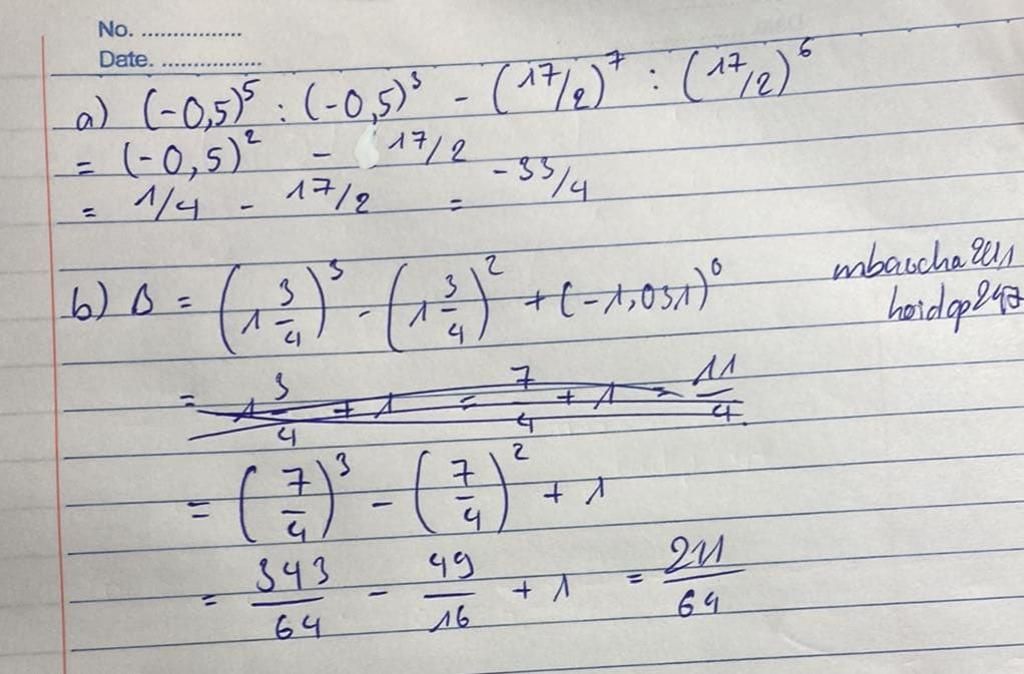 No. ................
Date. ................
a) (-0,5)^5 : (-0,5)^3 - (17/2)^7 : (17/2)^6
= (-0,5)^2 - 17/2
= 1/4 - 17/2 = -33/4
b) B = (1 3/4)^3 - (1 3/4)^2 + (-1,031)^0
= 1 3/4 + 1 = 7/4 + 1 = 11/4
= (7/4)^3 - (7/4)^2 + 1
= 343/64 - 49/16 + 1 = 211/64